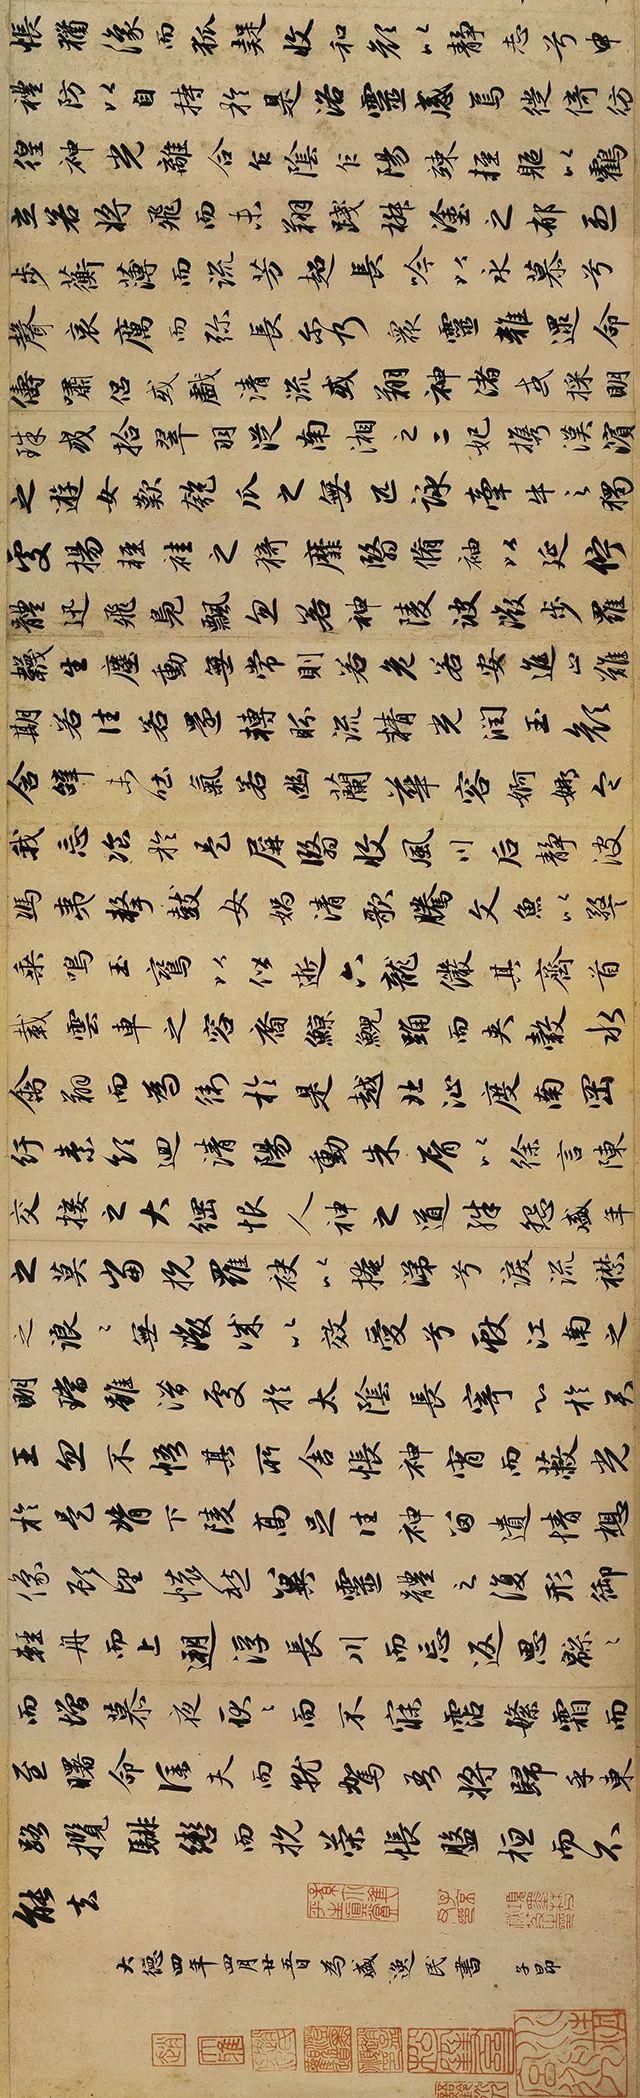 悵猶豫而狐疑收和顏以靜志兮申
禮防以自持於是洛靈感焉徙倚彷
徨神光離合乍陰乍陽竦輕軀以鶴
立若將飛而未翔踐椒塗之郁烈
步蘅薄而流芳超長吟以永慕兮
聲哀厲而弥長爾乃衆靈雜遝命
儔嘯侶或戲清流或翔神渚或採明
珠或拾翠羽從南湘之二妃携漢濱
之遊女歎匏瓜之無匹詠牽牛之獨
處揚輕袿之猗靡翳脩袖以延佇
體迅飛鳧飄忽若神陵波微步羅
襪生塵動無常則若危若安進止難
期若往若還轉眄流精光潤玉顏
含辭未吐氣若幽蘭華容婀娜令
我忘飡於是屏翳收風川后靜波
馮夷擊鼓女媧清歌騰文魚以警
乘鳴玉鸞以偕逝六龍儼其齊首
載雲車之容裔鯨鯢踊而夾轂水
禽翔而為衛於是越北沚度南岡
紆素領迴清陽動朱脣以徐言陳
交接之大綱恨人神之道殊怨盛年
之莫當抗羅袂以掩涕兮淚流襟
之浪〻無微誠以效愛兮獻江南之
明璫雖潛處於太陰長寄心於君
王忽不悟其所舍悵神宵而蔽光
於是背下陵高足往神留遺情想
像顧望懷愁冀靈體之復形御
輕舟而上遡浮長川而忘返思緜〻
而增慕夜耿〻而不寐霑繁霜而
至曙命僕夫而就駕吾將歸乎東
路攬騑轡而抗策悵盤桓而不
能去
大德四年四月廿五日為盛逸民書 子昂